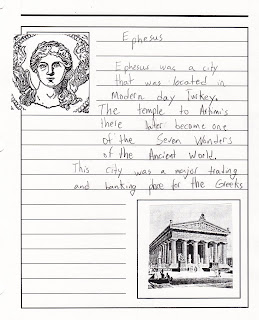 Ephesus
Ephesus was a city
that was located in
Modern day Turkey.
The temple to Artimis
there later became one
of the Seven Wonders
of the Ancient World.
This city was a major trading
and banking place for the Greeks